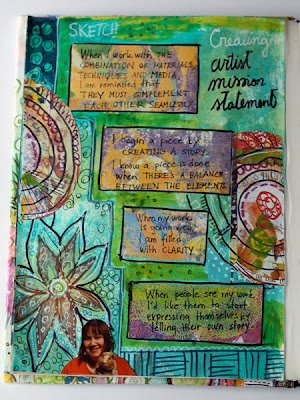 SKETCH
Creating
artist
mission
statement
When I work with THE
COMBINATION OF MATERIALS,
TECHNIQUES AND MEDIA,
I am reminded that
THEY MUST COMPLEMENT
EACH OTHER SEAMLESSLY.
I begin a piece by
CREATING A STORY.
I know a piece is done
when THERE'S A BALANCE
BETWEEN THE ELEMENTS.
When my work
is going well
I am filled
with CLARITY
When people see my work,
I'd like them to start
expressing themselves by
telling their own story.